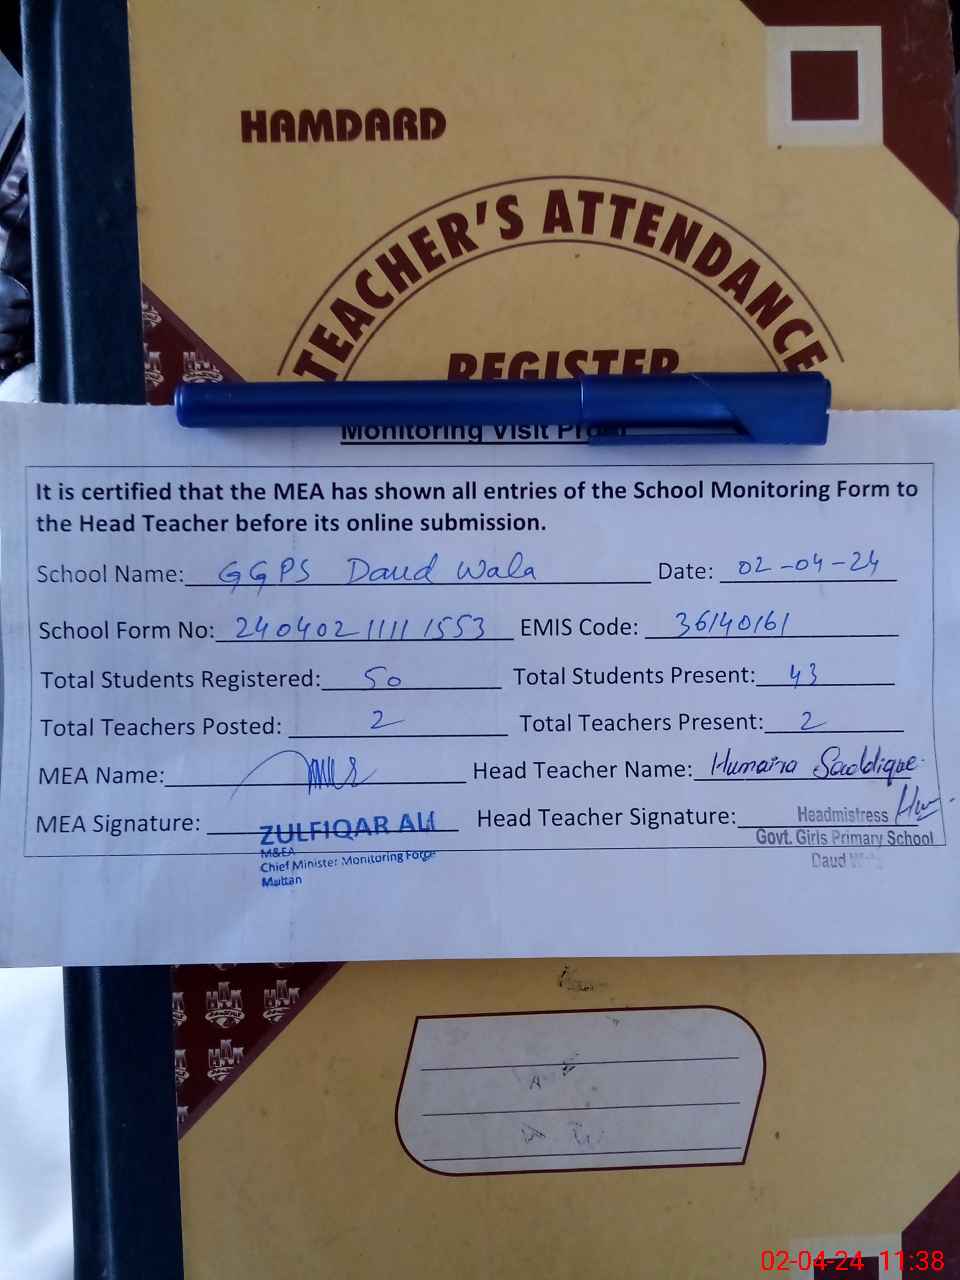 HAMDARD
TEACHER'S ATTENDANCE
REGISTER
Monitoring Visit
It is certified that the MEA has shown all entries of the School Monitoring Form to
the Head Teacher before its online submission.
School Name: GGPS Daud Wala Date: 02-04-24
School Form No: 24040211111553 EMIS Code: 36140161
Total Students Registered: 50 Total Students Present: 43
Total Teachers Posted: 2 Total Teachers Present: 2
MEA Name: Head Teacher Name: Humaira Saddique.
MEA Signature: ZULFIQAR ALI Head Teacher Signature: Headmistress
M&EA Govt. Girls Primary School
Chief Minister Monitoring Force Daud
Multan
02-04-24 11:38